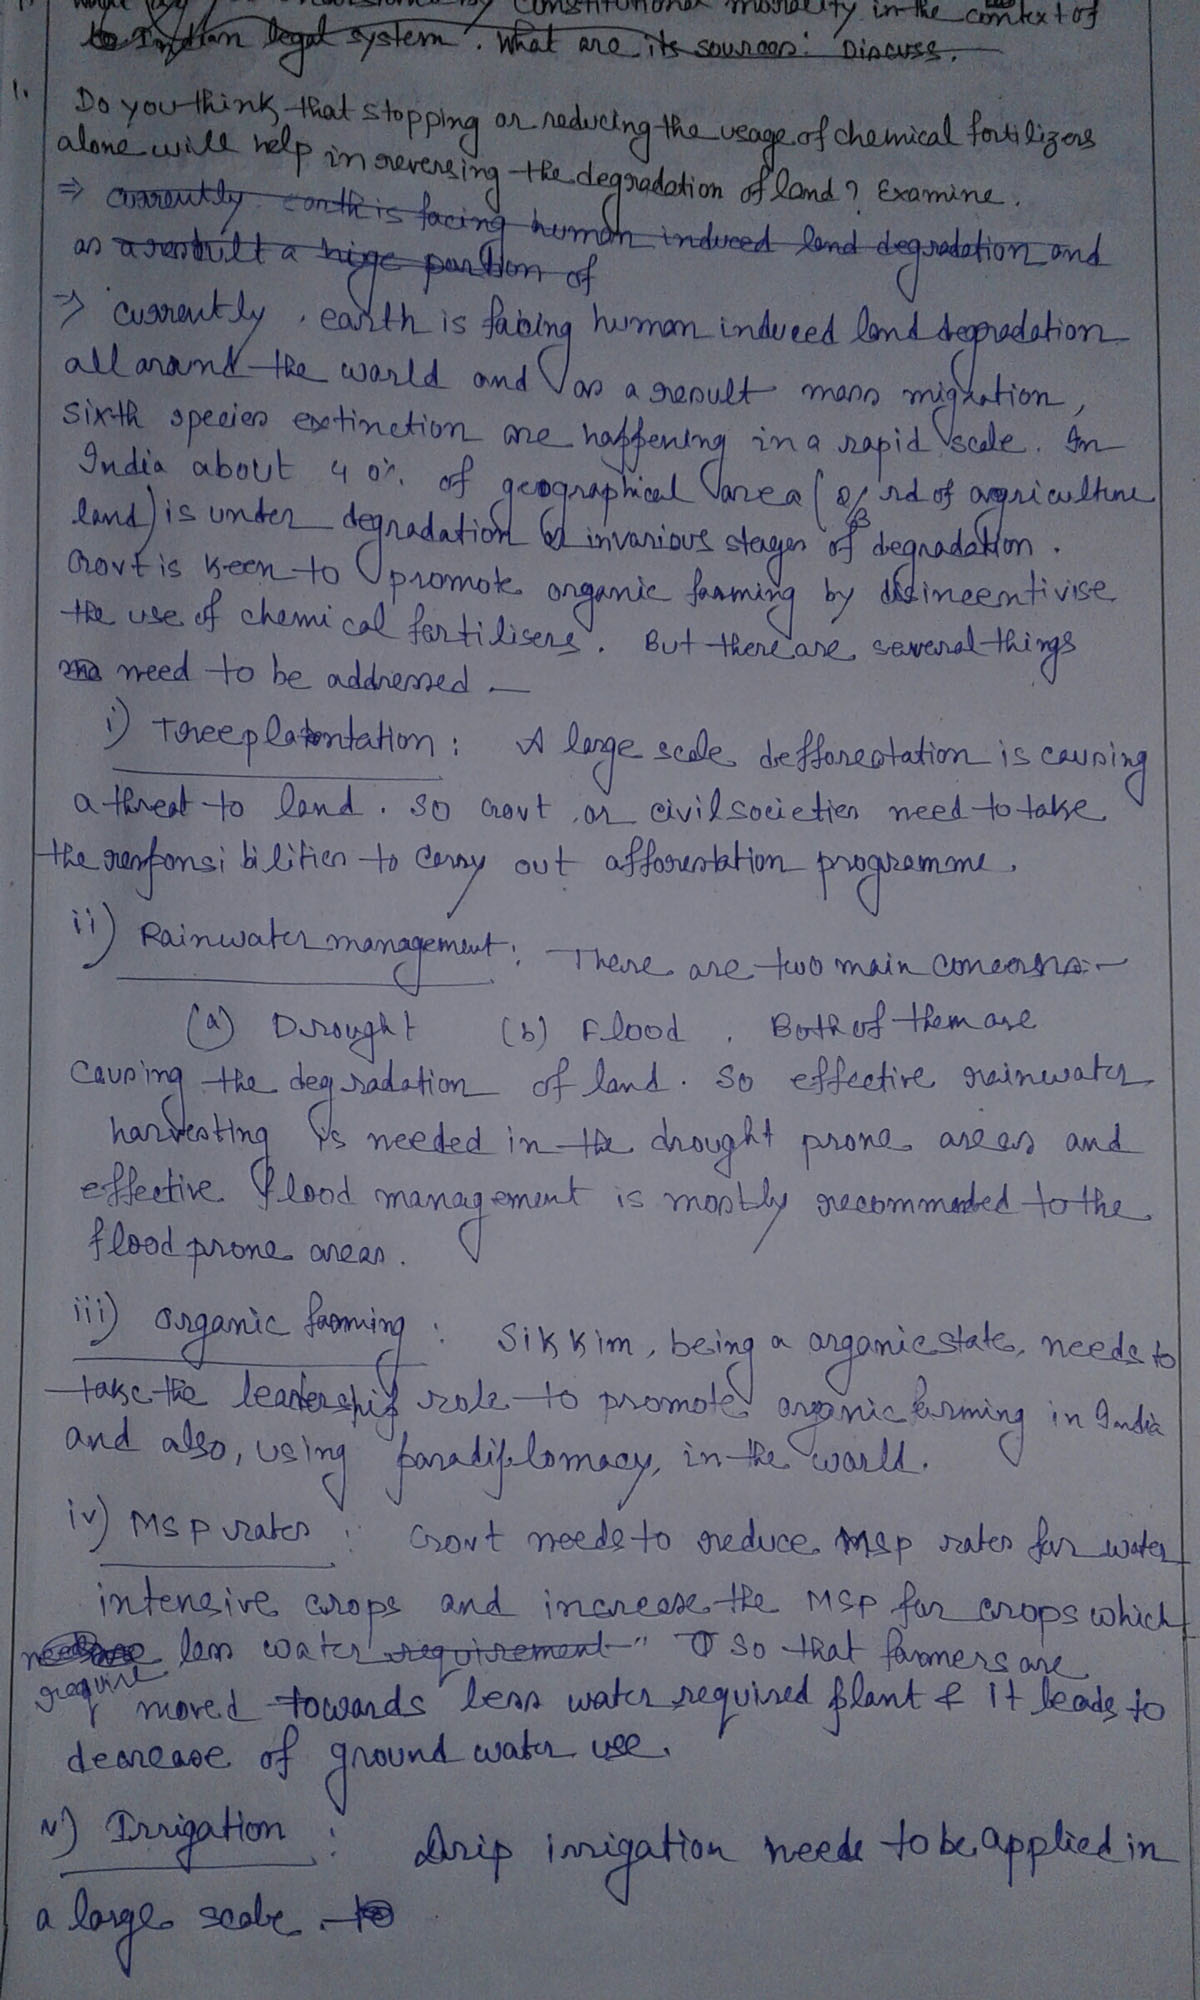 constitutional morality in the context of
to Indian legal system. What are its sources. Discuss.
1. Do you think that stopping or reducing the usage of chemical fortilizers
alone will help in reversing the degradation of land? Examine.
⇒ currently earth is facing human induced land degradation and
as a result a huge portion of
⇒ currently, earth is facing human induced land degradation
all around the world and as a result mass migration,
sixth species extinction are happening in a rapid scale. In
India about 40% of geographical area (2/3rd of agriculture
land) is under degradation in various stages of degradation.
Govt is keen to promote organic farming by disincentivise
the use of chemical fertilisers. But there are several things
need to be addressed —
i) Tree plantation : A large scale defforestation is causing
a threat to land. So Govt or civil societies need to take
the responsibilities to carry out afforestation programme.
ii) Rainwater management : There are two main concerns :-
(a) Drought (b) Flood . Both of them are
causing the degradation of land. So effective rainwater
harvesting is needed in the drought prone areas and
effective flood management is mostly recommended to the
flood prone areas.
iii) Organic farming : Sikkim, being a organic state, needs to
take the leadership role to promote organic farming in India
and also, using paradiplomacy, in the world.
iv) MSP rates : Govt needs to reduce MSP rates for water
intensive crops and increase the MSP for crops which
require less water requirement " so that farmers are
moved towards less water required plant & it leads to
decrease of ground water use.
v) Irrigation : Drip irrigation needs to be applied in
a large scale.